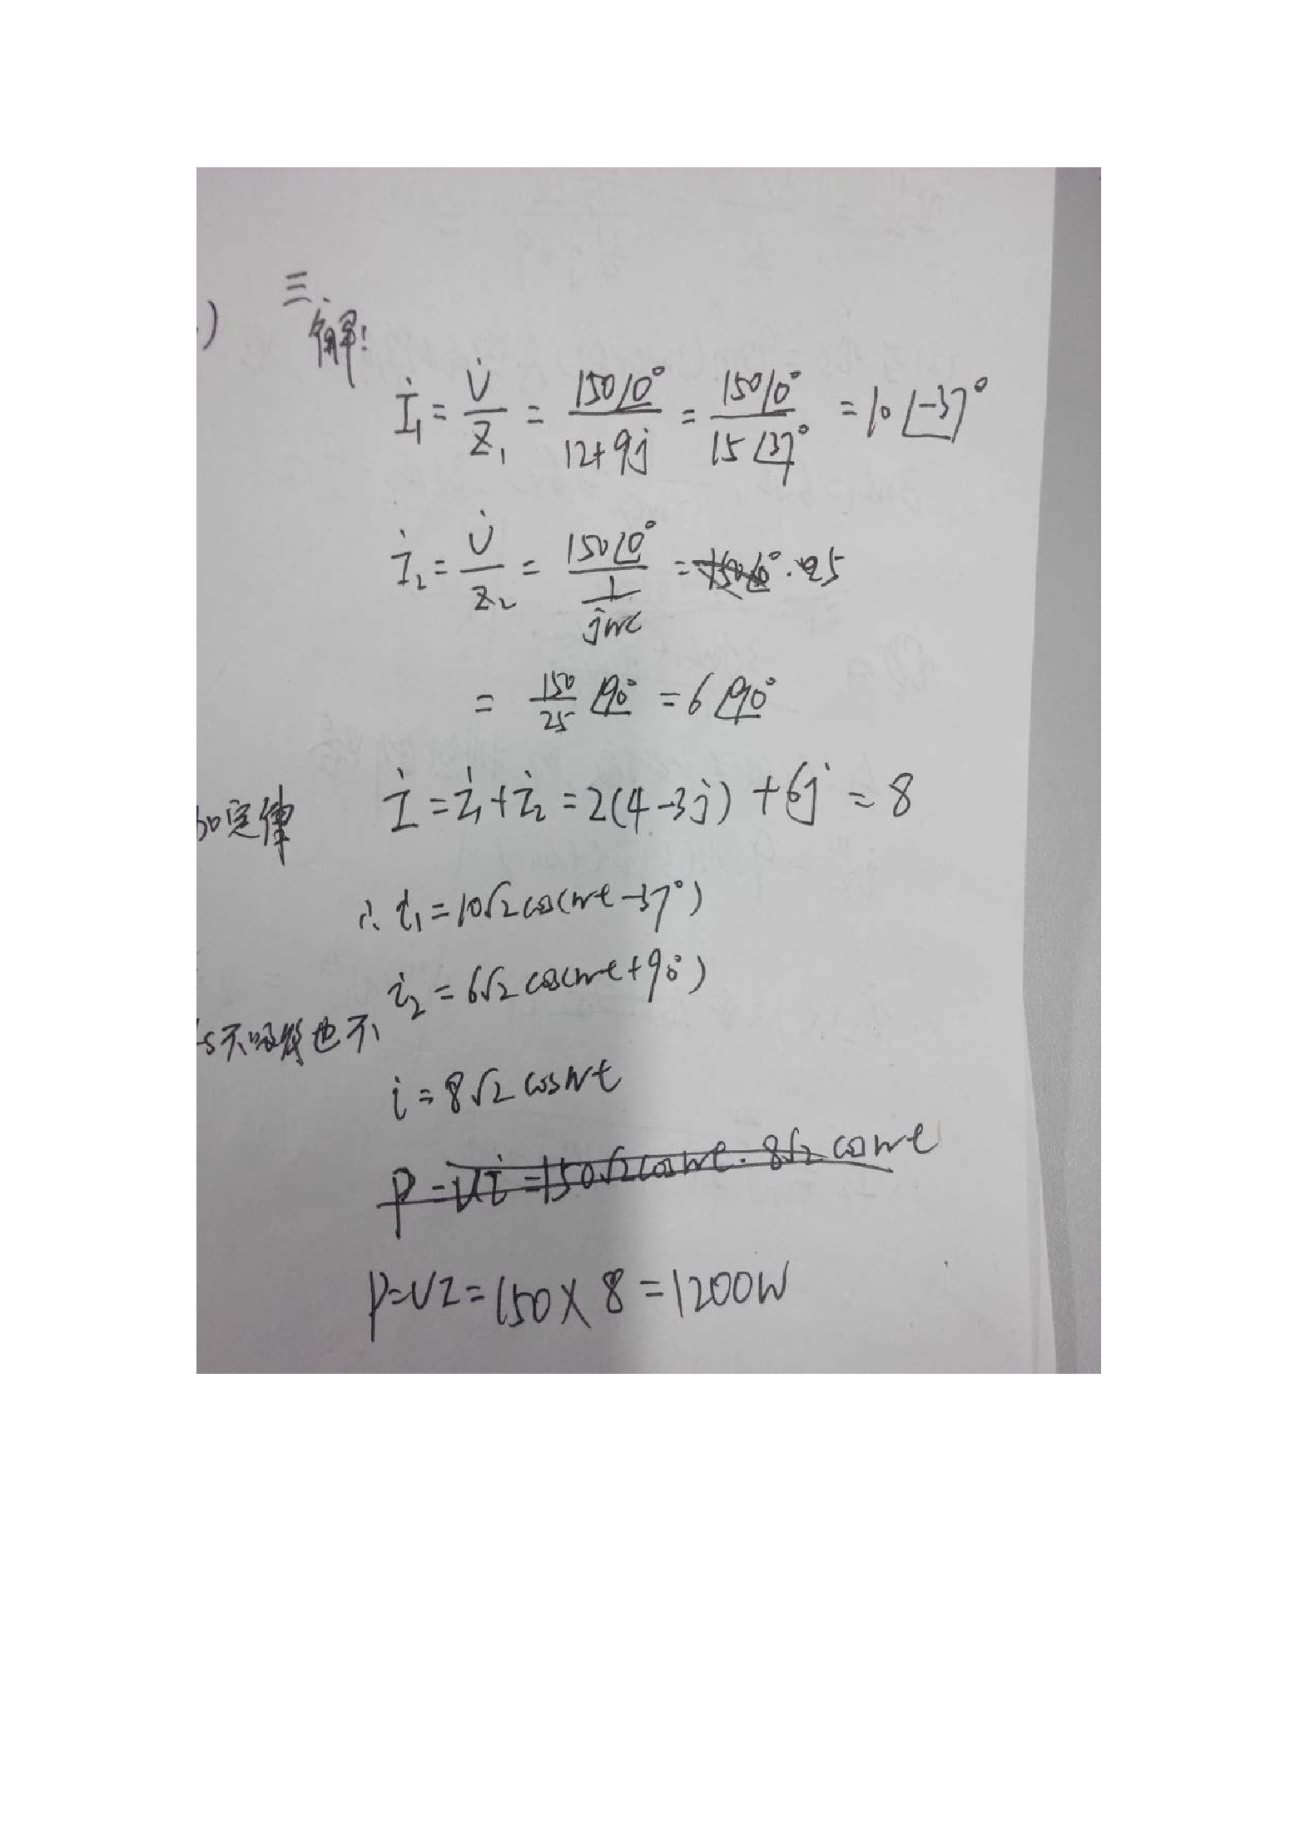 三、
解:
İ₁ = U̇/Z₁ = 150∠0°/(12+9j) = 150∠0°/(15∠37°) = 10∠-37°
İ₂ = U̇/Z₂ = 150∠0°/(1/(jwc)) =
= 150/25 ∠90° = 6∠90°
加定律
İ = İ₁ + İ₂ = 2(4-3j) + 6j = 8
∴ i₁ = 10√2 cos(wt-37°)
i₂ = 6√2 cos(wt+90°)
也不
i = 8√2 cos wt
P = Ui = 150√2 cos wt · 8√2 cos wt
P = UI = 150 × 8 = 1200W